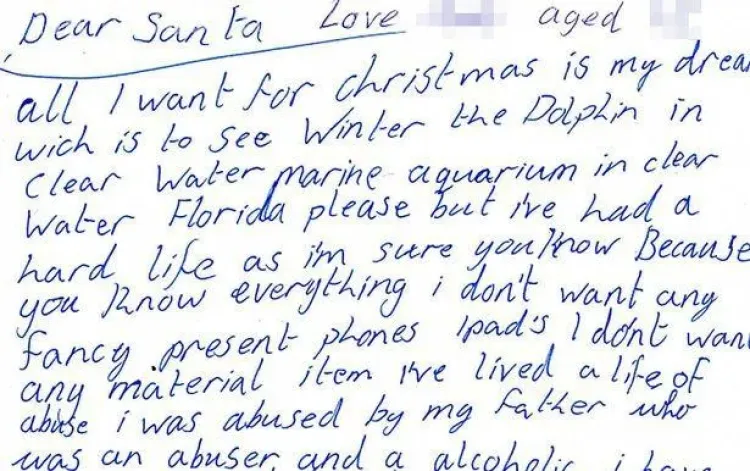 Dear Santa Love aged
all I want for christmas is my drea
wich is to see Winter the Dolphin in
Clear Water marine aquarium in clear
Water Florida please but i've had a
hard life as i'm sure you know Because
you know everything i don't want any
fancy present phones Ipad's I don't want
any material item i've lived a life of
abuse i was abused by my father who
was an abuser and a alcoholic i have